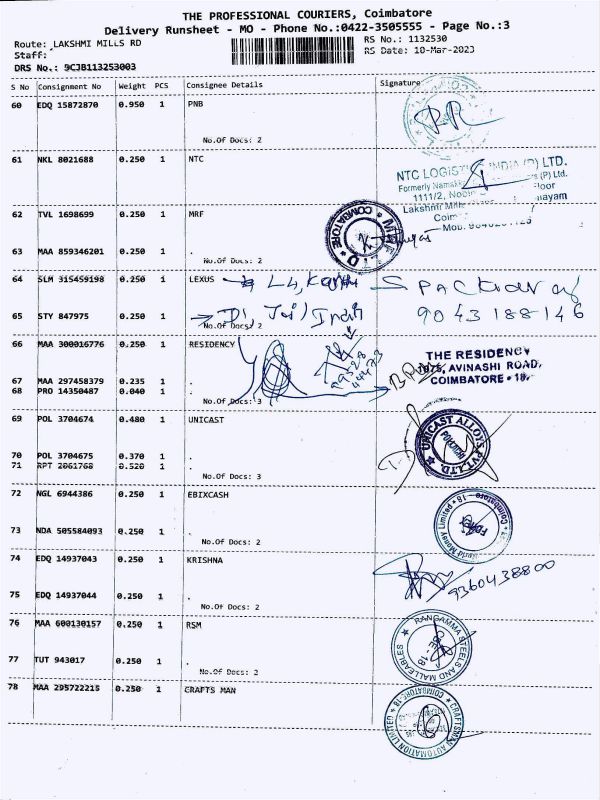 THE PROFESSIONAL COURIERS, Coimbatore
Delivery Runsheet - MO - Phone No.:0422-3505555 - Page No.:3
Route: LAKSHMI MILLS RD
RS No.: 1132530
Staff:
RS Date: 10-Mar-2023
DRS No.: 9CJB113253003
S No Consignment No Weight PCS Consignee Details Signature
60 EDQ 15872870 0.950 1 PNB
No.Of Docs: 2
61 NKL 8021688 0.250 1 NTC
NTC LOGISTICS INDIA (P) LTD.
Formerly
(P) Ltd.
1111/2,
Floor
Lakshmi Mills
62 TVL 1698699 0.250 1 MRF
COIMBATORE
63 MAA 859346201 0.250 1 .
No.Of Docs: 2
64 SLM 315459198 0.250 1 LEXUS
65 STY 847975 0.250 1
9043188146
No.Of Docs: 2
66 MAA 300016776 0.250 1 RESIDENCY
THE RESIDENCY
1076, AVINASHI ROAD,
COIMBATORE - 18.
67 MAA 297458379 0.235 1 .
68 PRO 14350487 0.040 1 .
No.Of Docs: 3
69 POL 3704674 0.480 1 UNICAST
UNICAST ALLOYS PVT. LTD.
70 POL 3704675 0.370 1 .
71 RPT 2061768 0.520 1 .
No.Of Docs: 3
72 NGL 6944386 0.250 1 EBIXCASH
World Money Limited
Coimbatore - 18
73 NDA 505584093 0.250 1 .
No.Of Docs: 2
74 EDQ 14937043 0.250 1 KRISHNA
9360438800
75 EDQ 14937044 0.250 1 .
No.Of Docs: 2
76 MAA 600130157 0.250 1 RSM
RANGAMMA STEELS AND MALLEABLES
77 TUT 943017 0.250 1 .
No.Of Docs: 2
78 MAA 295722215 0.250 1 CRAFTS MAN
CRAFTSMAN AUTOMATION LIMITED
COIMBATORE-18